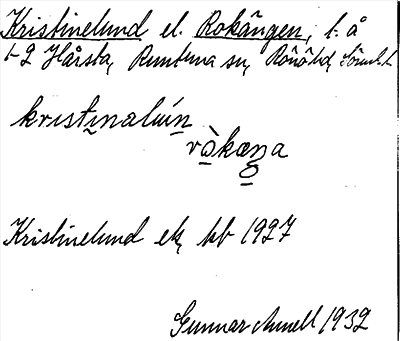 Kristinelund el. Rokängen, t. å
1-2 Hårsta, Runtuna sn, Rönö hd, Söml. l.
kristinaluin
ròkæŋa
Kristinelund ek, kb 1927
Gunnar Arnell 1932